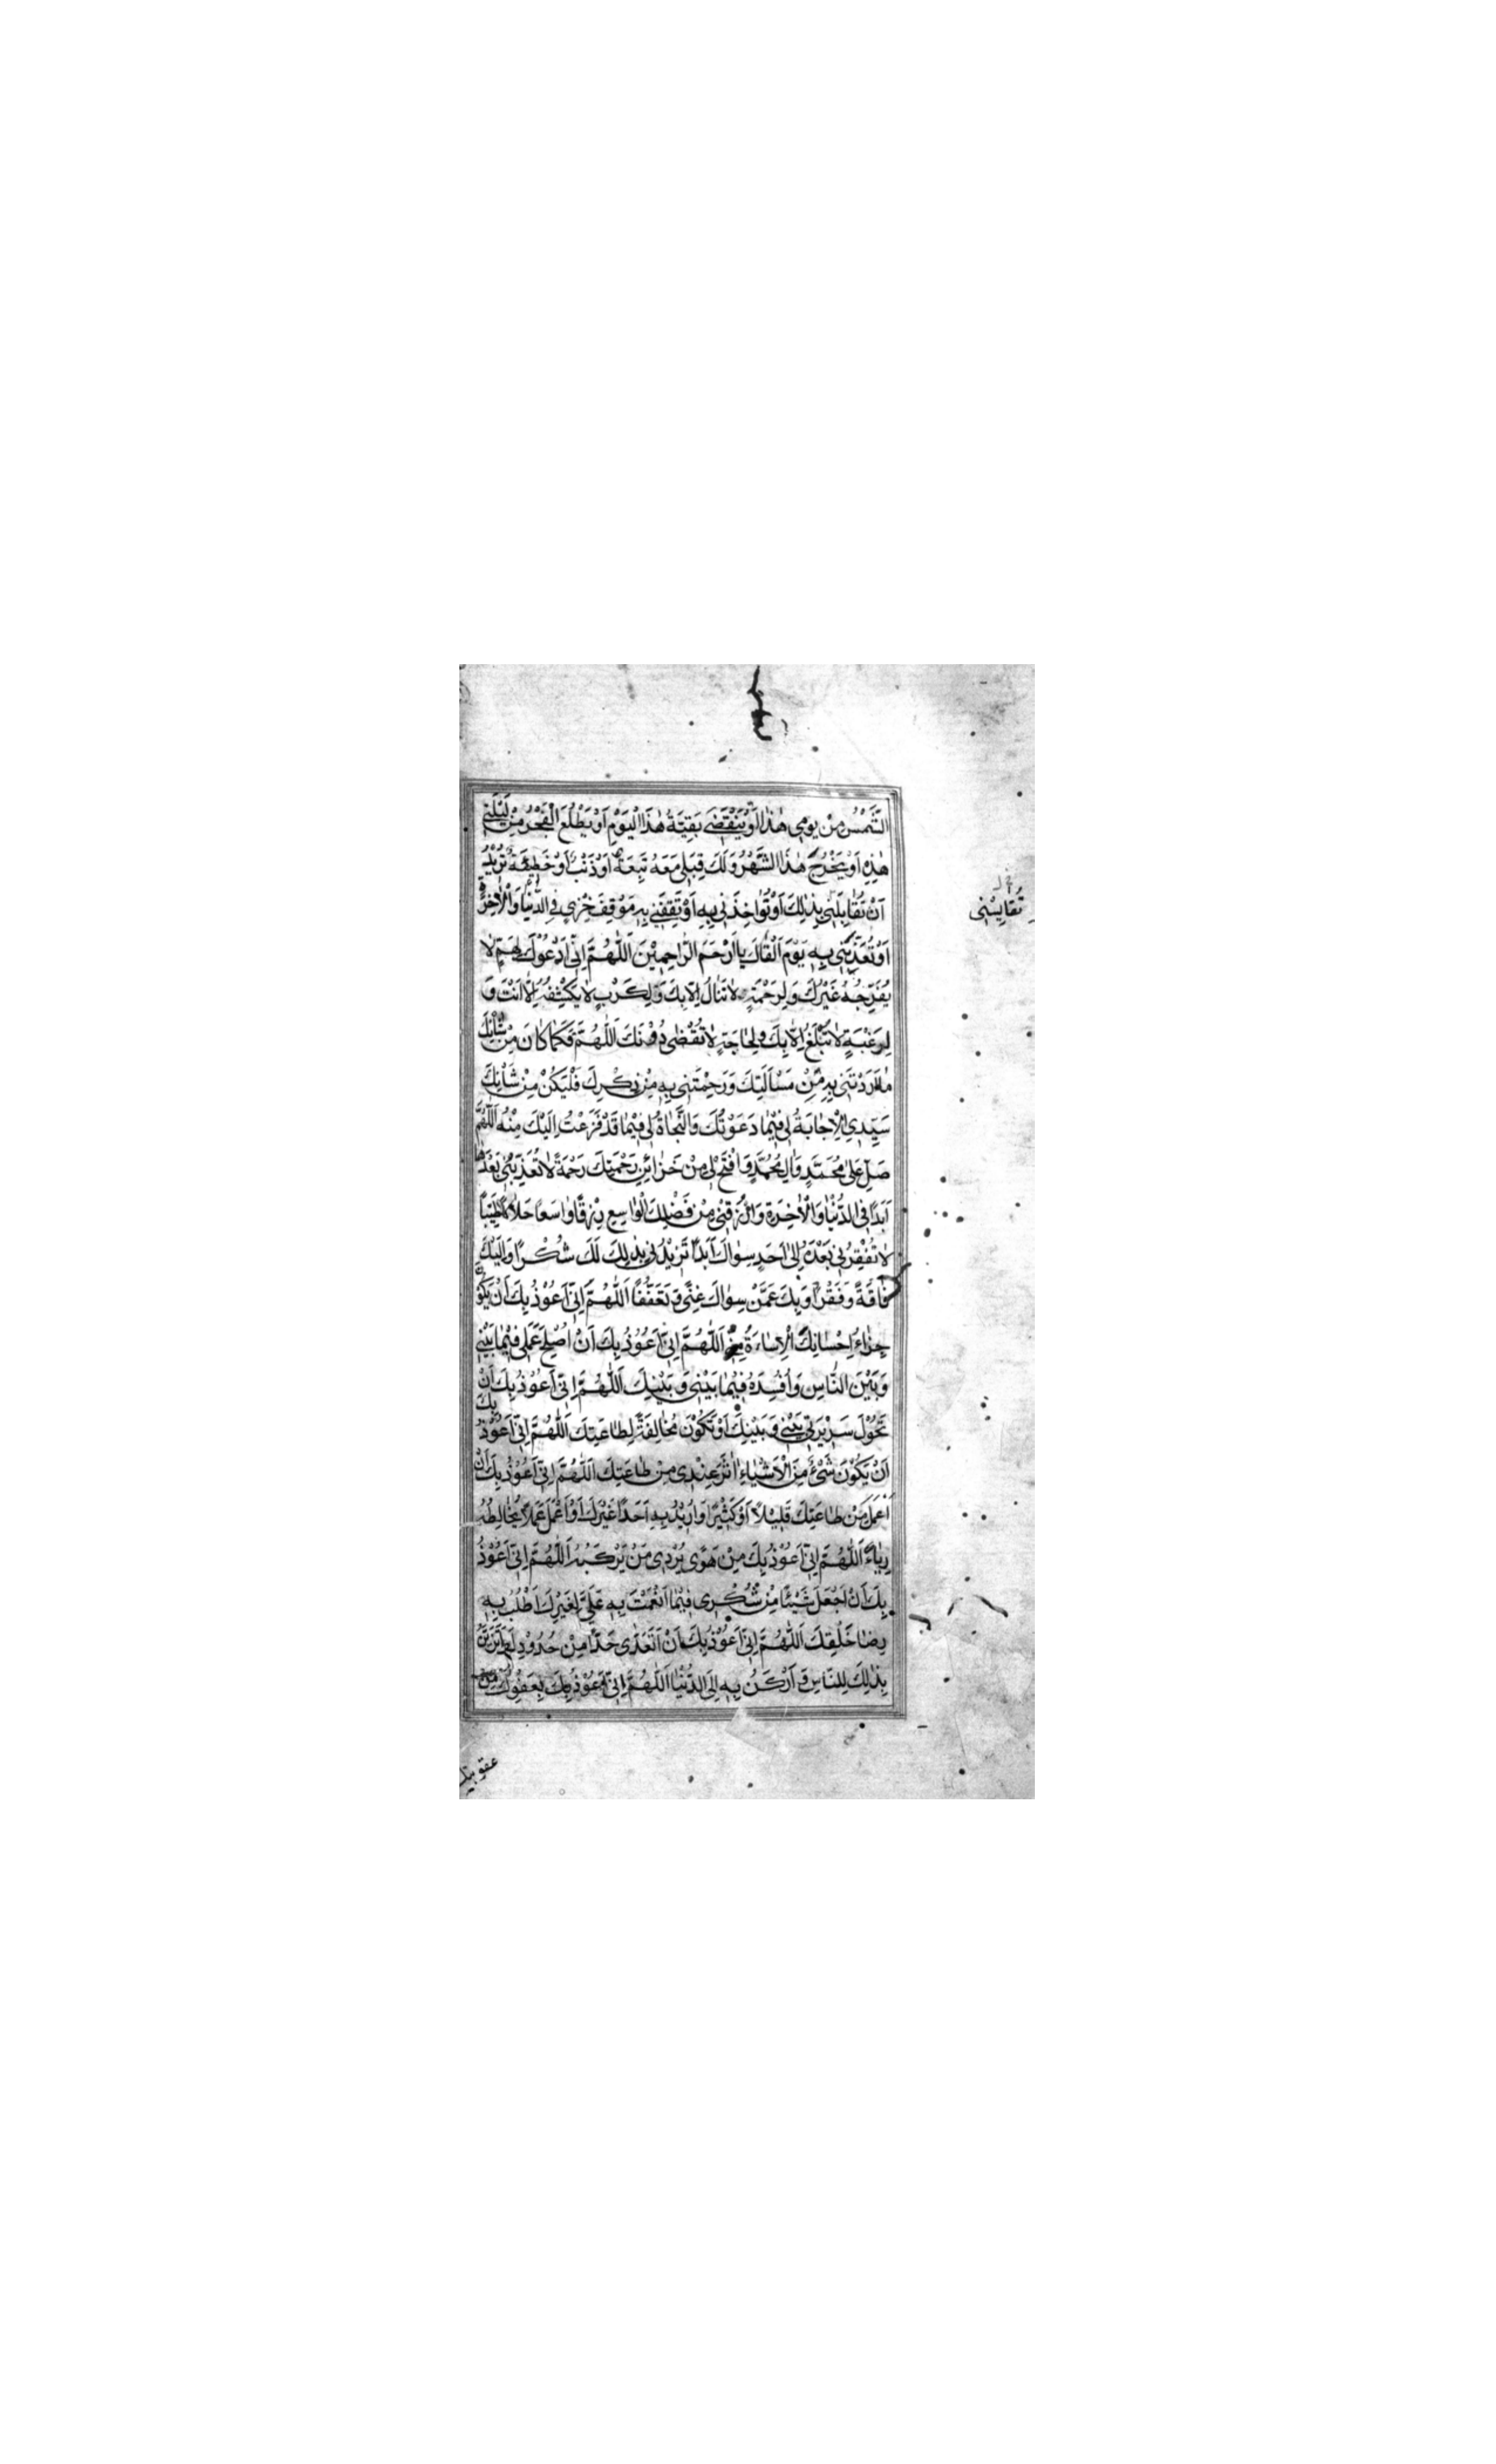 الشَّمْسُ مِنْ يَوْمِي هٰذَا اَوْ يَنْقَضِيَ بَقِيَّةُ هٰذَا الْيَوْمِ اَوْ يَطْلُعَ الْفَجْرُ مِنْ لَيْلَتِي
هٰذِهِ اَوْ يَخْرُجَ هٰذَا الشَّهْرُ وَلَكَ قِبَلِي مَعَهُ تَبِعَةٌ اَوْ ذَنْبٌ اَوْ خَطِيْئَةٌ تُرِيْدُ
اَنْ تُقَابِلَنِي بِذٰلِكَ اَوْ تُؤَاخِذَنِي بِهِ اَوْ تَقِفَنِي بِهِ مَوْقِفَ خِزْيٍ فِي الدُّنْيَا وَالْاٰخِرَةِ
تُقَايِسَنِي
اَوْ تُعَذِّبَنِي بِهِ يَوْمَ اَلْقَاكَ يَا اَرْحَمَ الرَّاحِمِيْنَ اَللّٰهُمَّ اِنِّي اَدْعُوْكَ لِهَمٍّ لَا
يُفَرِّجُهُ غَيْرُكَ وَلِرَحْمَةٍ لَا تُنَالُ اِلَّا بِكَ وَلِكَرْبٍ لَا يَكْشِفُهُ اِلَّا اَنْتَ وَ
لِرَغْبَةٍ لَا تُبْلَغُ اِلَّا بِكَ وَلِحَاجَةٍ لَا تُقْضٰى دُوْنَكَ اَللّٰهُمَّ فَكَمَا كَانَ مِنْ شَأْنِكَ
مَا اَرَدْتَنِي بِهِ مِنْ مَسْاَلَتِكَ وَرَحِمْتَنِي بِهِ مِنْ ذِكْرِكَ فَلْيَكُنْ مِنْ شَأْنِكَ
سَيِّدِي الْاِجَابَةُ لِي فِيْمَا دَعَوْتُكَ وَالنَّجَاةُ لِي فِيْمَا قَدْ فَزِعْتُ اِلَيْكَ مِنْهُ اَللّٰهُمَّ
صَلِّ عَلٰى مُحَمَّدٍ وَاٰلِ مُحَمَّدٍ وَافْتَحْ لِي مِنْ خَزَائِنِ رَحْمَتِكَ رَحْمَةً لَا تُعَذِّبُنِي بَعْدَهَا
اَبَدًا فِي الدُّنْيَا وَالْاٰخِرَةِ وَارْزُقْنِي مِنْ فَضْلِكَ الْوَاسِعِ رِزْقًا وَاسِعًا حَلَالًا طَيِّبًا
لَا تُفْقِرُنِي بَعْدَهُ اِلٰى اَحَدٍ سِوَاكَ اَبَدًا تَزِيْدُنِي بِذٰلِكَ لَكَ شُكْرًا وَاِلَيْكَ
فَاقَةً وَفَقْرًا وَبِكَ عَمَّنْ سِوَاكَ غِنًى وَتَعَفُّفًا اَللّٰهُمَّ اِنِّي اَعُوْذُ بِكَ اَنْ يَكُوْنَ
جَزَاءُ اِحْسَانِكَ الْاِسَاءَةُ مِنِّي اَللّٰهُمَّ اِنِّي اَعُوْذُ بِكَ اَنْ اُصْلِحَ عَمَلِي فِيْمَا بَيْنِي
وَبَيْنَ النَّاسِ وَاُفْسِدَهُ فِيْمَا بَيْنِي وَبَيْنَكَ اَللّٰهُمَّ اِنِّي اَعُوْذُ بِكَ اَنْ
تَحُوْلَ سَرِيْرَتِي بَيْنِي وَبَيْنَكَ اَوْ تَكُوْنَ مُخَالِفَةً لِطَاعَتِكَ اَللّٰهُمَّ اِنِّي اَعُوْذُ بِكَ
اَنْ يَكُوْنَ شَيْءٌ مِنَ الْاَشْيَاءِ اٰثَرَ عِنْدِي مِنْ طَاعَتِكَ اَللّٰهُمَّ اِنِّي اَعُوْذُ بِكَ اَنْ
اَعْمَلَ مِنْ طَاعَتِكَ قَلِيْلًا اَوْ كَثِيْرًا وَاُرِيْدُ بِهِ اَحَدًا غَيْرَكَ اَوْ اَعْمَلَ عَمَلًا يُخَالِطُهُ
رِيَاءٌ اَللّٰهُمَّ اِنِّي اَعُوْذُ بِكَ مِنْ هَوًى يُرْدِي مَنْ يَرْكَبُهُ اَللّٰهُمَّ اِنِّي اَعُوْذُ
بِكَ اَنْ اَجْعَلَ شَيْئًا مِنْ شُكْرِي فِيْمَا اَنْعَمْتَ بِهِ عَلَيَّ لِغَيْرِكَ اَطْلُبُ بِهِ
رِضَا خَلْقِكَ اَللّٰهُمَّ اِنِّي اَعُوْذُ بِكَ اَنْ اَتَعَدّٰى حَدًّا مِنْ حُدُوْدِكَ اَتَزَيَّنُ
بِذٰلِكَ لِلنَّاسِ وَاَرْكَنُ بِهِ اِلَى الدُّنْيَا اَللّٰهُمَّ اِنِّي اَعُوْذُ بِعَفْوِكَ مِنْ
عقوبتك